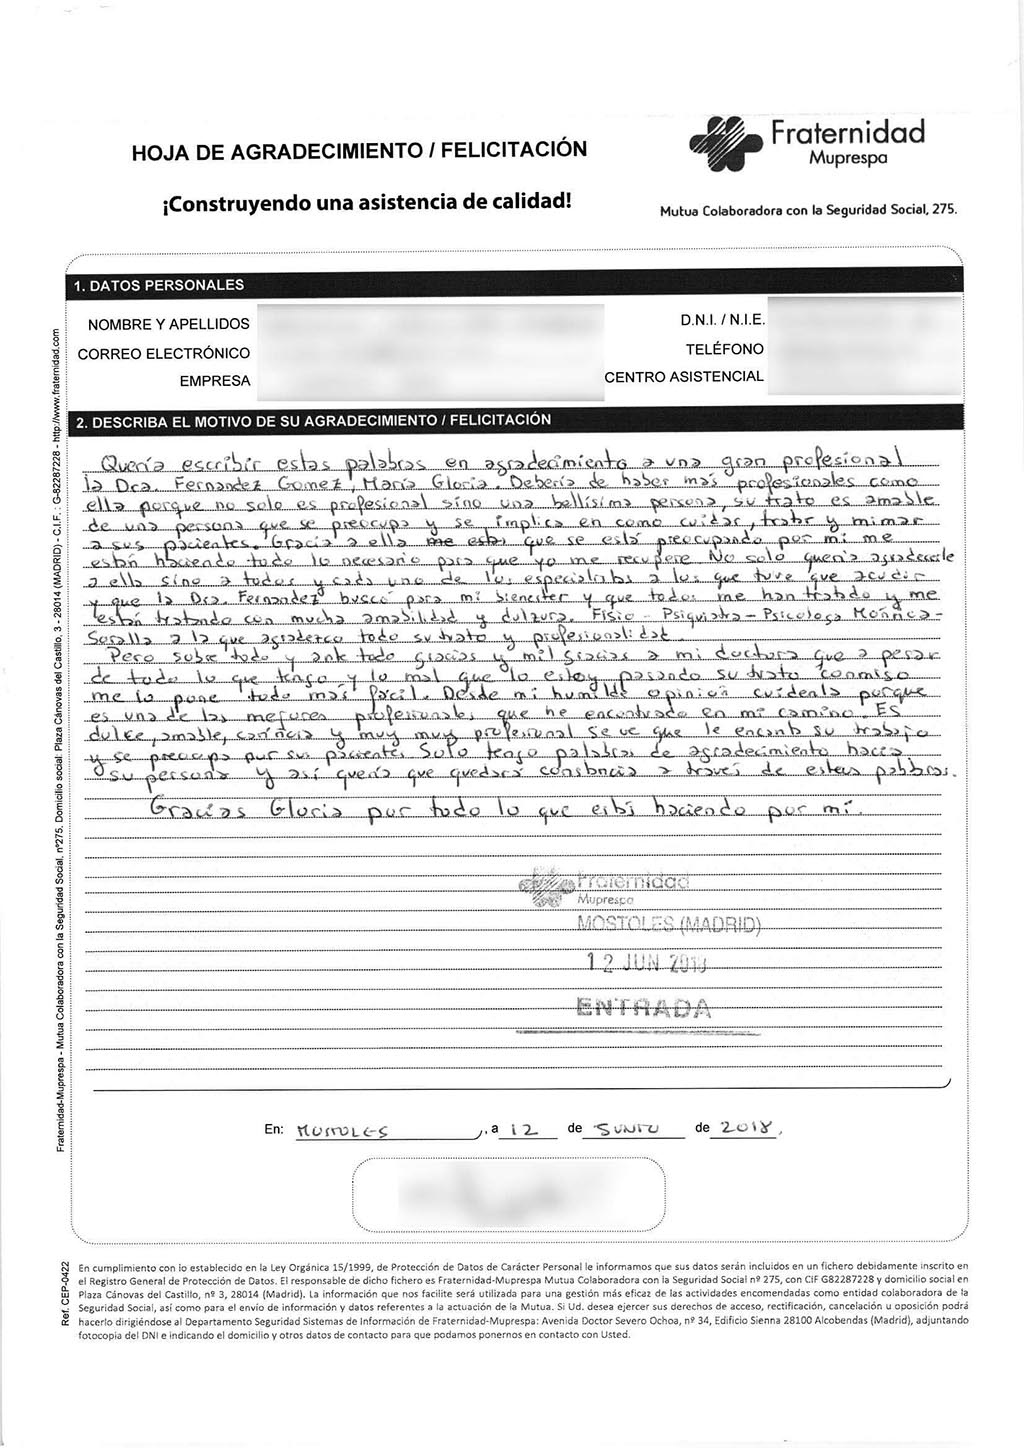 HOJA DE AGRADECIMIENTO / FELICITACIÓN
¡Construyendo una asistencia de calidad!
Fraternidad
Muprespa
Mutua Colaboradora con la Seguridad Social, 275.
1. DATOS PERSONALES
NOMBRE Y APELLIDOS
D.N.I. / N.I.E.
CORREO ELECTRÓNICO
TELÉFONO
EMPRESA
CENTRO ASISTENCIAL
2. DESCRIBA EL MOTIVO DE SU AGRADECIMIENTO / FELICITACIÓN
Quería escribir estas palabras en agradecimiento a una gran profesional
la Dra. Fernandez Gomez, María Gloria. Debería de haber más profesionales como
ella porque no solo es profesional sino una bellísima persona, su trato es amable
de una persona que se preocupa y se implica en como cuidar, tratar y mimar
a sus pacientes. Gracia a ella que se está preocupando por mi me
están haciendo todo lo necesario para que yo me recupere No solo quería agradecerle
a ella sino a todos y cada uno de los especialistas a los que tuve que acudir
y que la Dra. Fernandez buscó para mi bienester y que todos me han tratado y me
están tratando con mucha amabilidad y dulzura. Fisio - Psiquiatra - Psicologa Mónica -
a la que agradezco todo su trato y profesionalidad.
Pero sobre todo y ante todo gracias y mil gracias a mi doctora que a pesar
de todo lo que tengo y lo mal que lo estoy pasando su trato conmigo
me lo pone todo más facil. Desde mi humilde opinión cuidenla porque
es una de las mejores profesionales que he encontrado en mi camino. ES
dulce, amable, y muy muy profesional se ve que le encanta su trabajo
y se preocupa por sus pacientes Solo tengo palabras de agradecimiento hacia
su persona y así quería que quedará constancia a través de estas palabras.
Gracias Gloria por todo lo que estás haciendo por mí.
Fraternidad
Muprespa
MOSTOLES (MADRID)
12 JUN 2018
ENTRADA
En: MOSTOLES, a 12 de JUNIO de 2018,
En cumplimiento con lo establecido en la Ley Orgánica 15/1999, de Protección de Datos de Carácter Personal le informamos que sus datos serán incluidos en un fichero debidamente inscrito en
el Registro General de Protección de Datos. El responsable de dicho fichero es Fraternidad-Muprespa Mutua Colaboradora con la Seguridad Social nº 275, con CIF G82287228 y domicilio social en
Plaza Cánovas del Castillo, nº 3, 28014 (Madrid). La información que nos facilite será utilizada para una gestión más eficaz de las actividades encomendadas como entidad colaboradora de la
Seguridad Social, así como para el envío de información y datos referentes a la actuación de la Mutua. Si Ud. desea ejercer sus derechos de acceso, rectificación, cancelación u oposición podrá
hacerlo dirigiéndose al Departamento Seguridad Sistemas de Información de Fraternidad-Muprespa: Avenida Doctor Severo Ochoa, nº 34, Edificio Sienna 28100 Alcobendas (Madrid), adjuntando
fotocopia del DNI e indicando el domicilio y otros datos de contacto para que podamos ponernos en contacto con Usted.
Fraternidad-Muprespa - Mutua Colaboradora con la Seguridad Social, nº275. Domicilio social: Plaza Cánovas del Castillo, 3 - 28014 (MADRID) - C.I.F. : G-82287228 - http://www.fraternidad.com
Ref. CEP-0422